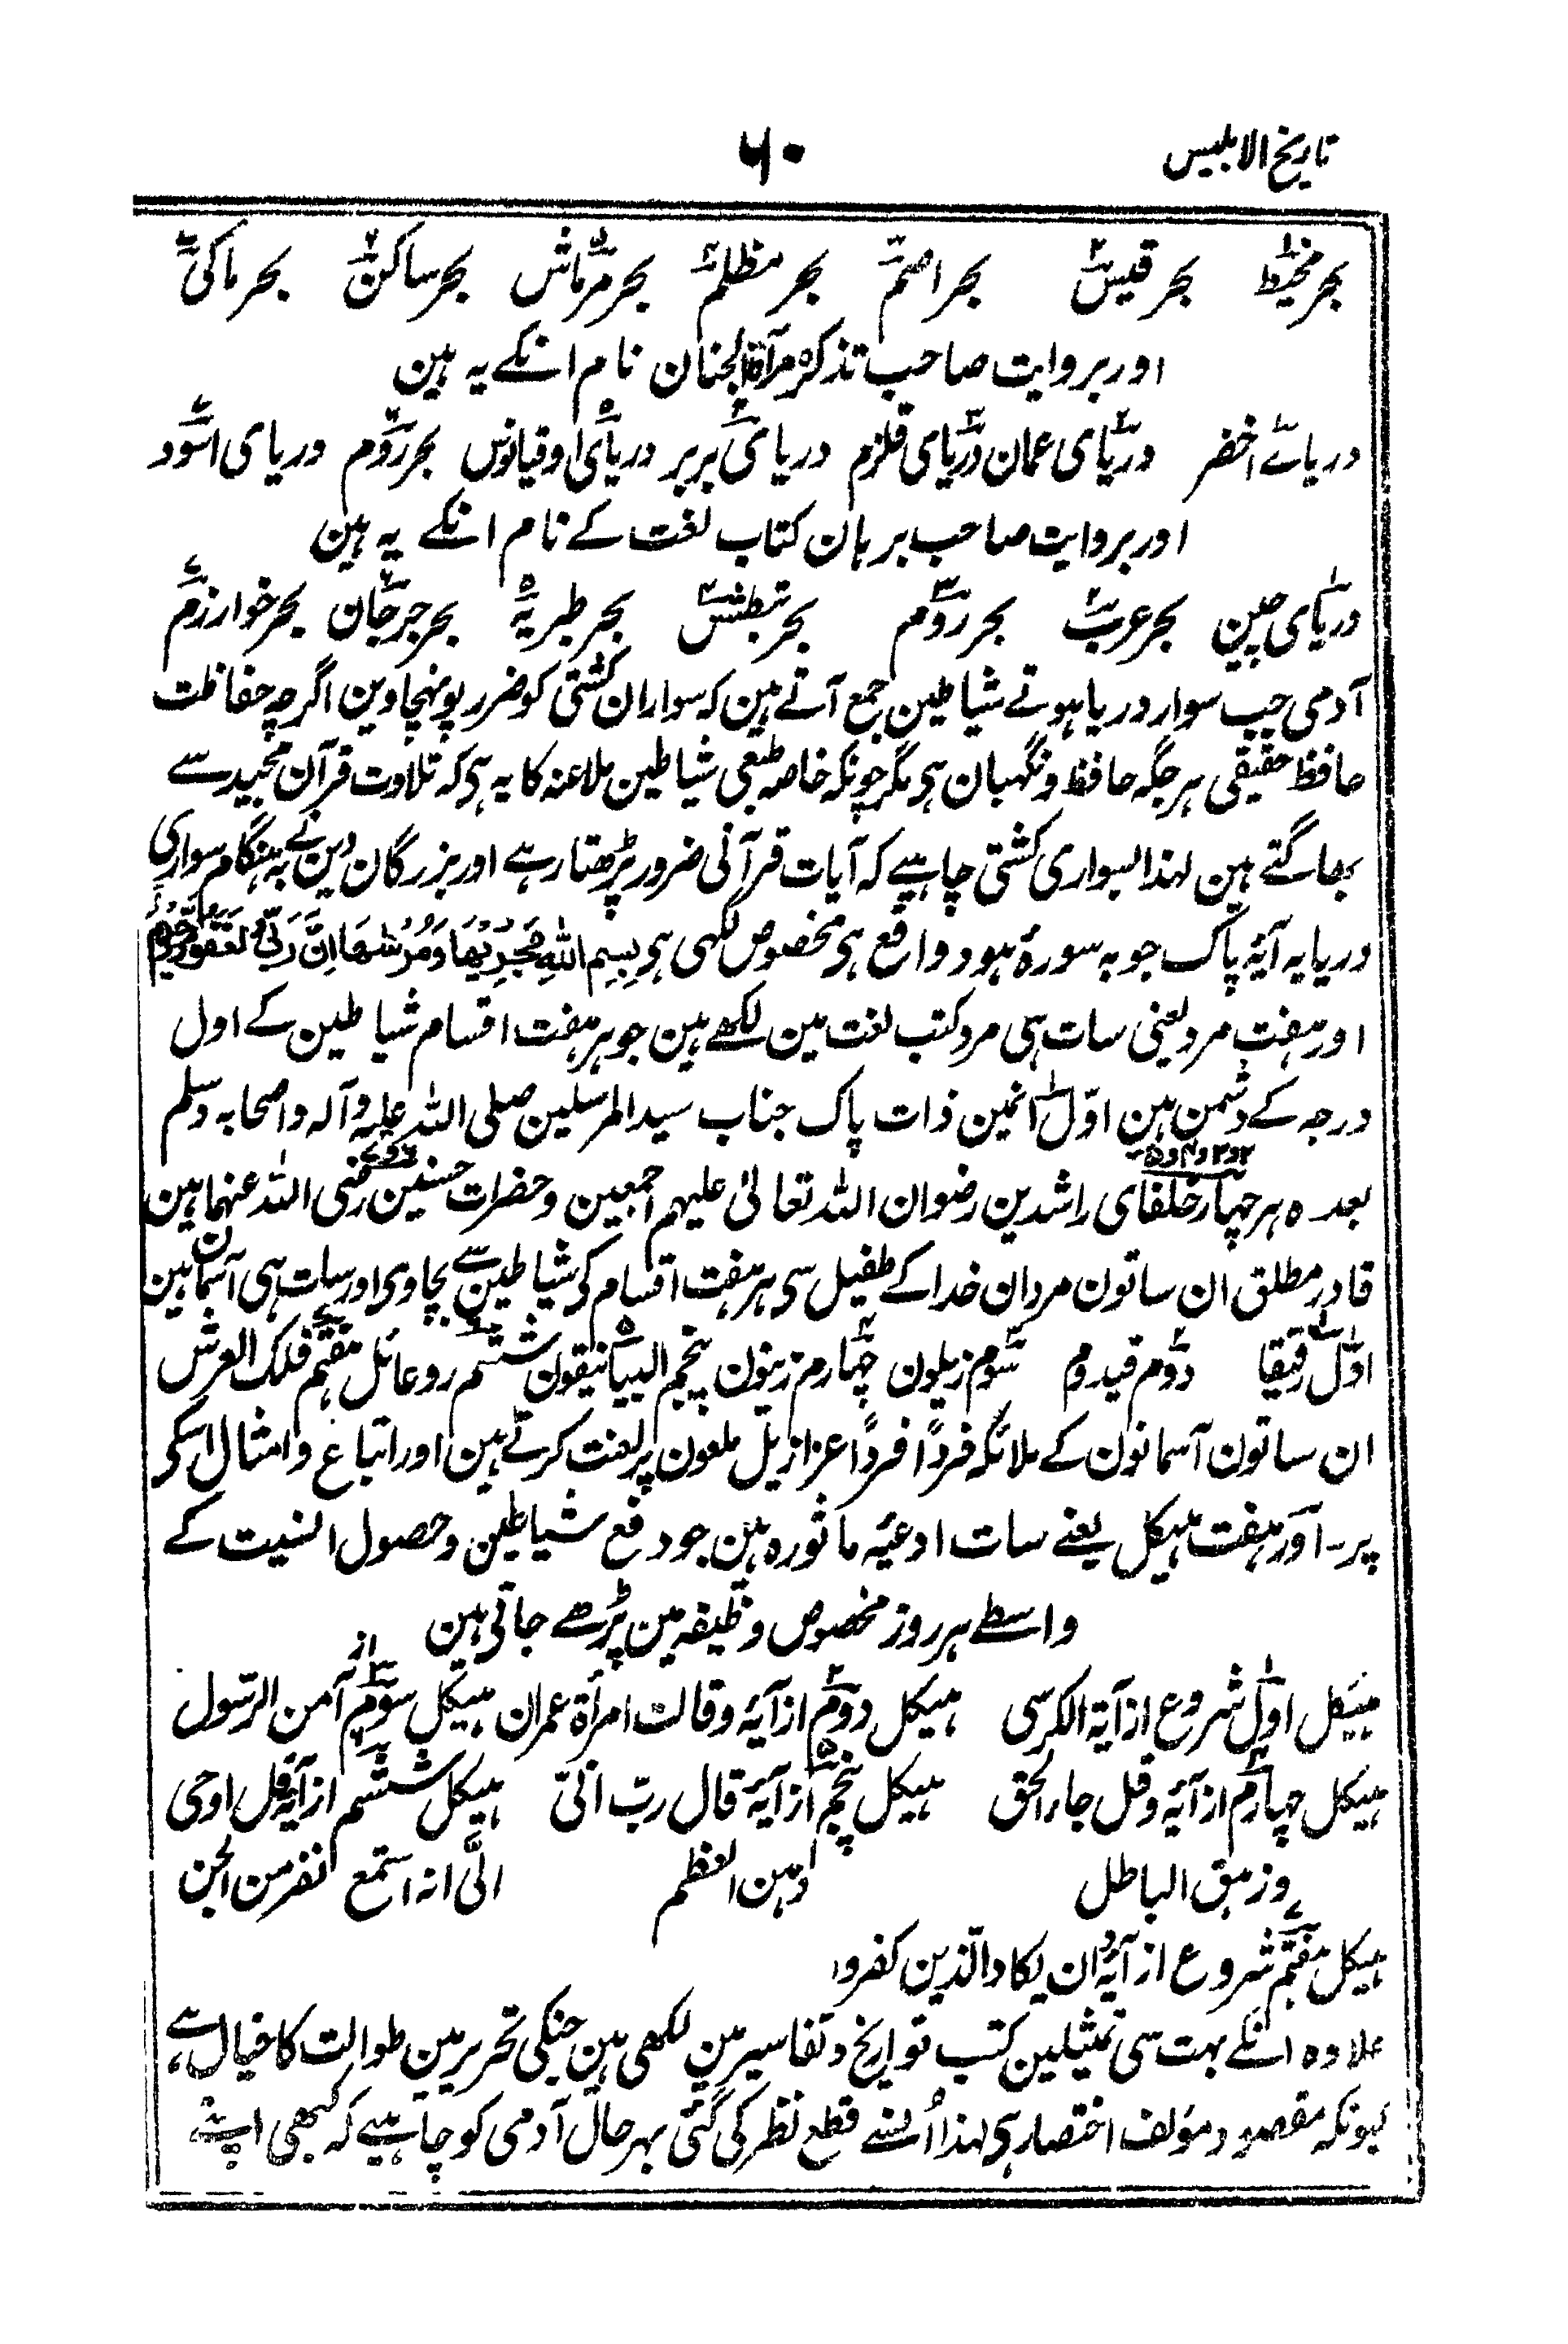 تاریخ الابلیس
۶۰
بحر محیط بحر قیس بحر اصم بحر مظلم بحر مرماش بحر ساکن بحر ماکی
اور بروایت صاحب تذکرہ مرآۃ الجنان نام انکے یہ ہین
دریاے اخضر دریای عمان دریای قلزم دریای بربر دریای اوقیانوس بحر روم دریای اسود
اور بروایت صاحب برہان کتاب لغت کے نام انکے یہ ہین
دریای چین بحر عرب بحر روم بحر نبطش بحر طبریہ بحر جرجان بحر خوارزم
آدمی جب سوار دریا ہوتے شیاطین جمع آتے ہین کہ سواران کشتی کو ضرر پونہچاوین اگرچہ حفاظت
حافظ حقیقی ہر جگہ حافظ و نگہبان ہی مگر چونکہ خاصہ طبعی شیاطین ملاعنہ کا یہ ہی کہ تلاوت قرآن مجید سے
بھاگتے ہین لہذا بسواری کشتی چاہیے کہ آیات قرآنی ضرور پڑھتا رہے اور بزرگان دین نے بہ ہنگام سواری
دریا یہ آیۂ پاک جو بہ سورۂ ہود واقع ہی مخصوص لکھی ہی بِسِمِ اللهِ مَجْرِیٰهَا وَمُرْسٰهَا اِنَّ رَبِّیْ لَغَفُوْرٌ رَّحِیْمٌ
اور ہفت مرد یعنی سات ہی مرد کتب لغت مین لکھے ہین جو ہر ہفت اقسام شیاطین کے اول
درجہ کے دشمن ہین اوّل انمین ذات پاک جناب سید المرسلین صلی اللہ علیہ و آلہ و اصحابہ وسلم
بعدہ ہر چہار خلفای راشدین رضوان اللہ تعالیٰ علیہم اجمعین و حضرات حسنین رضی اللہ عنہما ہین
قادر مطلق ان ساتون مردان خدا کے طفیل سی ہر ہفت اقسام کی شیاطین سے بچاوی اور سات ہی آسمان ہین
اوّل رقیقا دوم قیدوم سوم زیلون چہارم زیتون پنجم البیانیقون ششم روعائل ہفتم فلک العرش
ان ساتون آسمانون کے ملائکہ فرداً فرداً عزازیل ملعون پر لعنت کرتے ہین اور اتباع و امثال اسکی
پر۔ اور ہفت ہیکل یعنے سات ادعیہ ماثورہ ہین جو دفع شیاطین و حصول انسیت کے
واسطے ہر روز مخصوص وظیفہ مین پڑھے جاتی ہین
ہیکل اوّل شروع از آیۃ الکرسی ہیکل دوم از آیۂ وقالت امرأۃ عمران ہیکل سوم از آمن الرسول
ہیکل چہارم از آیۂ وقل جاء الحق ہیکل پنجم از آیۂ قال رب انی ہیکل ششم از آیۂ قل اوحی
وزہق الباطل وہن العظم الیَّ انہ استمع نفر من الجن
ہیکل ہفتم شروع از آیۂ وان یکاد الّذین کفروا
علاوہ انکے بہت سی تمثیلین کتب تواریخ و تفاسیر مین لکھی ہین جنکی تحریر مین طوالت کا خیال ہے،
کیونکہ مقصود مؤلف اختصار ہی لہذا اُنسے قطع نظر کی گئی بہر حال آدمی کو چاہیے کہ کبھی اپنے